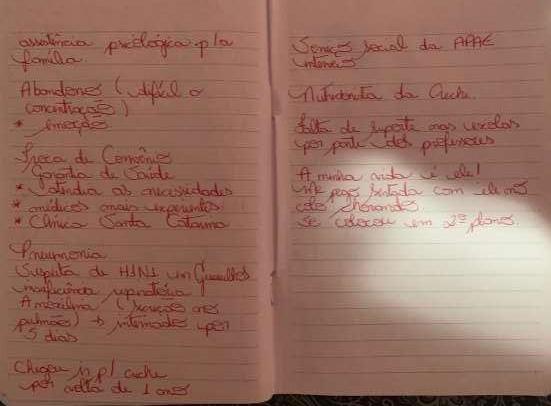 assistência psicológica p/a
família.
Abandono (difícil a
concentração)
* emoção
Troca de Convênio
Garantia de Saúde
* atendia as necessidades
* médicos mais experientes
* Clínica Santa Catarina
Pneumonia
Suspeita de H1N1 em Guarulhos
insuficiência respiratória
Amoxilina (secreção nos
pulmões) → internado por
5 dias
Chegou p/ creche
por volta de 1 ano
Serviço social da APAE
Nutricionista da Creche.
falta de suporte nas escolas
por parte dos professores
A minha vida é ele!
me pego sentada com ele no
colo chorando
se colocou em 2º plano.